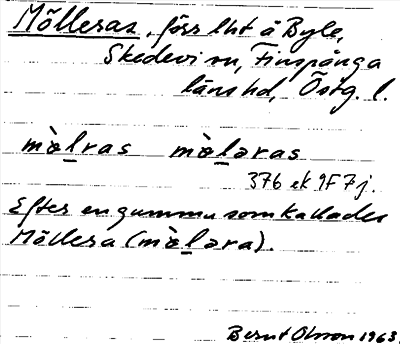 Mölleras, förr lht å Byle,
Skedevi sn, Finspånga
läns hd, Östg. l.
mø̀lras mø̀ləras
376 ek 9F 7j.
Efter en gumma som kallades
Möllera (mø̀ləra).
Bernt Olsson 1963.